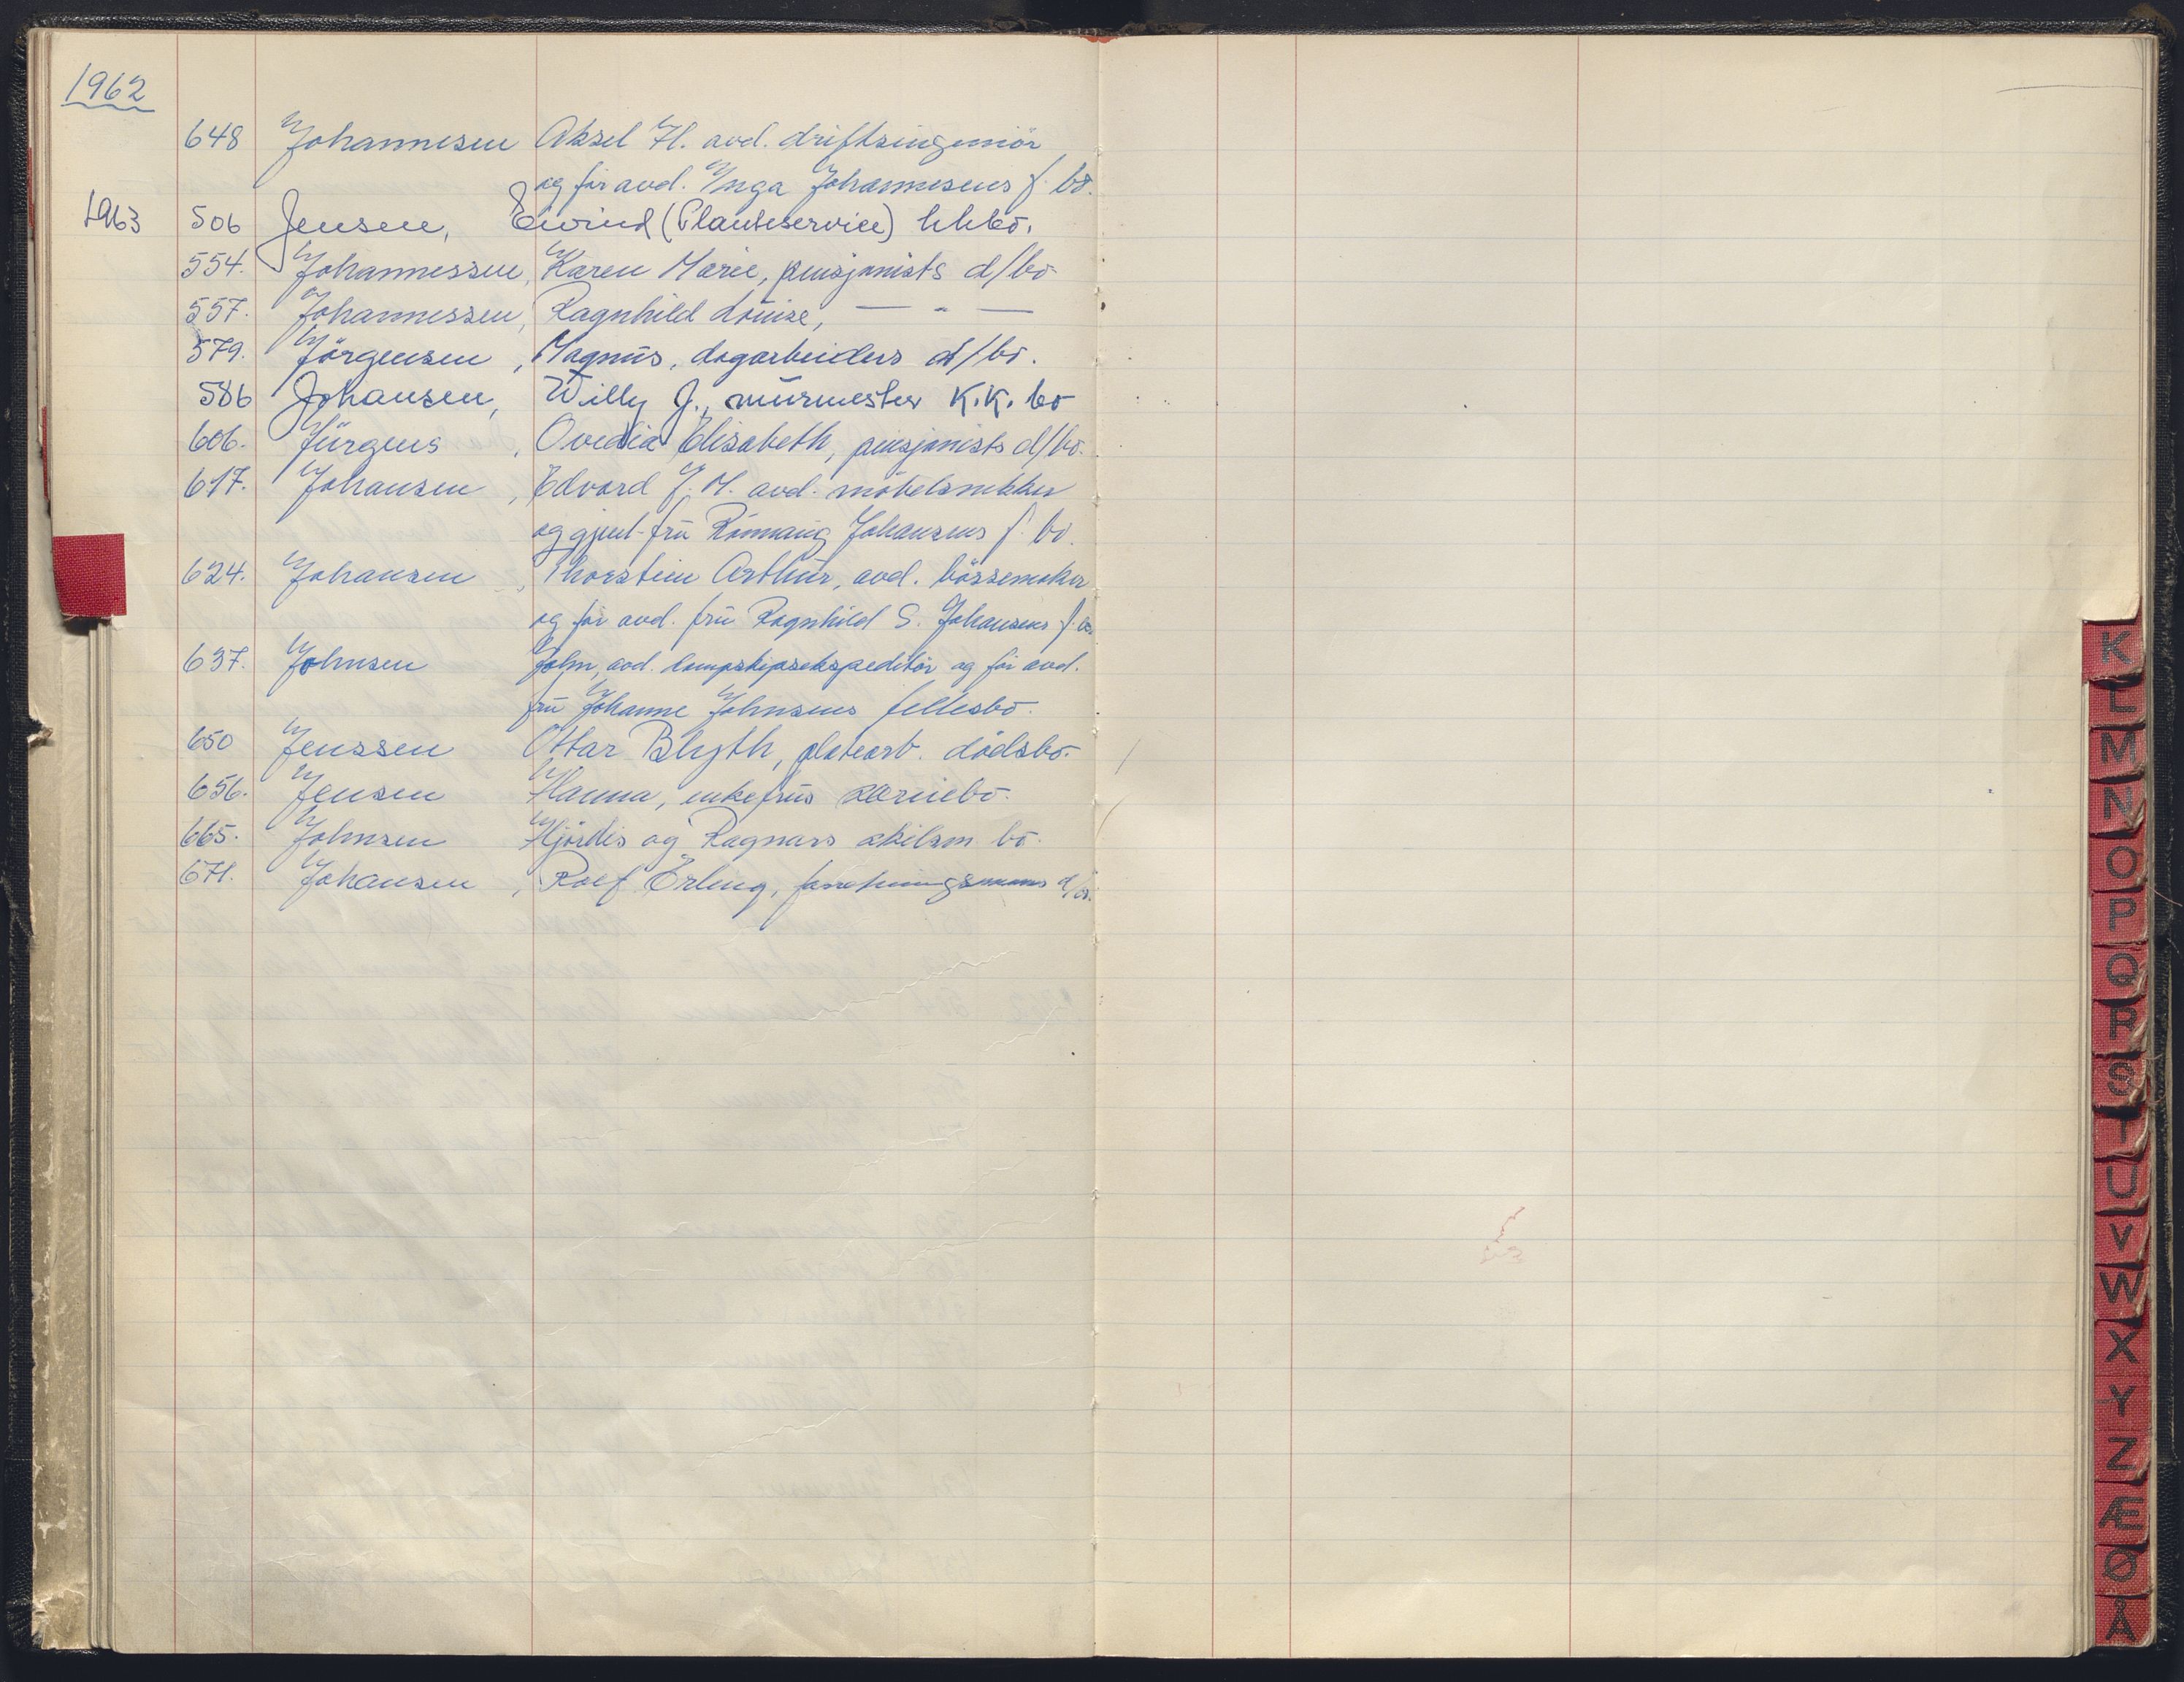 1962
648 Johannesen Aksel H. avd. driftsingeniör
og før avd. Inga Johannesens f. bo.
1963 506 Jensen, Eivind (Planteservice) kkbo.
554. Johannessen, Karen Marie, pensjonists d/bo
557. Johannessen, Ragnhild Louise, — " —
579. Jörgensen, Magnus, dagarbeiders d/bo.
586 Johansen, Willy J., murmester K.K. bo
606. Jürgens, Ovedia Elisabeth, pensjonists d/bo.
617. Johansen, Edvard J. M. avd. möbelsnekker
og gjenl. fru Rönnaug Johansens f. bo.
624. Johansen, Thorstein Arthur, avd. bössemaker
og før avd. fru Ragnhild S. Johansens f. bo.
637. Johnsen John, avd. dampskipsekspeditör og før avd.
fru Johanne Johnsens fellesbo.
650 Jenssen Ottar Blyth, platearb. dödsbo.
656. Jensen Hanna, enkefrus særeiebo.
665. Johnsen Hjördis og Ragnars skilsm. bo.
671. Johansen, Rolf Erling, forretningsmanns d/bo.
K
L
M
N
O
P
Q
R
S
T
U
V
W
X
Y
Z
Æ
Ø
Å